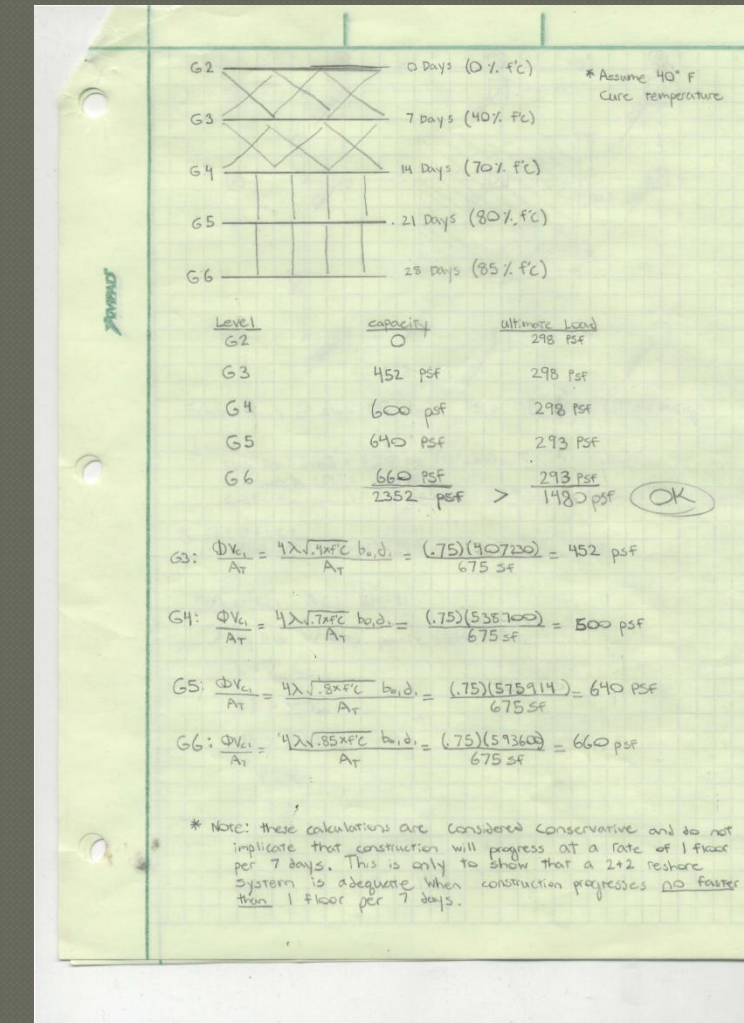 G2 0 Days (0% f'c)
* Assume 40° F
Cure temperature
G3 7 Days (40% f'c)
G4 14 Days (70% f'c)
G5 21 Days (80% f'c)
G6 28 Days (85% f'c)
AMPAD
Level capacity ultimate Load
G2 0 298 PSF
G3 452 PSF 298 PSF
G4 600 psf 298 PSF
G5 640 PSF 293 PSF
G6 660 PSF 293 PSF
2352 psf > 1480 psf OK
G3: ΦVc₁/AT = 4λ√.4xf'c b₀,d₁/AT = (.75)(407230)/675 sf = 452 psf
G4: ΦVc₁/AT = 4λ√.7xf'c b₀,d₁/AT = (.75)(538700)/675 sf = 500 psf
G5: ΦVc₁/AT = 4λ√.8xf'c b₀,d₁/AT = (.75)(575914)/675 sf = 640 PSF
G6: ΦVc₁/AT = 4λ√.85xf'c b₀,d₁/AT = (.75)(593600)/675 sf = 660 psf
* Note: these calculations are considered conservative and do not
implicate that construction will progress at a rate of 1 floor
per 7 days. This is only to show that a 2+2 reshore
system is adequate when construction progresses no faster
than 1 floor per 7 days.